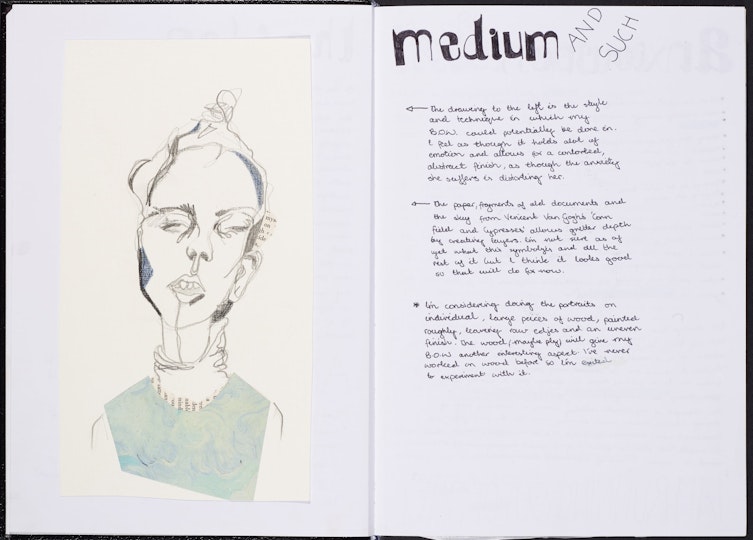 medium AND SUCH
The drawing to the left is the style
and technique in which my
B.O.W. could potentially be done in.
I feel as though it holds alot of
emotion and allows for a contorted,
abstract finish, as though the anxiety
she suffers is distorting her.
The paper, fragments of old documents and
the sky from Vincent Van Gogh's 'Corn
field and Cypresses' allows greater depth
by creating layers. I'm not sure as of
yet what this symbolizes and all the
rest of it but I think it looks good
so that will do for now.
* I'm considering doing the portraits on
individual, large pieces of wood, painted
roughly, leaving raw edges and an uneven
finish. The wood, (maybe ply) will give my
B.O.W another interesting aspect. I've never
worked on wood before so I'm excited
to experiment with it.